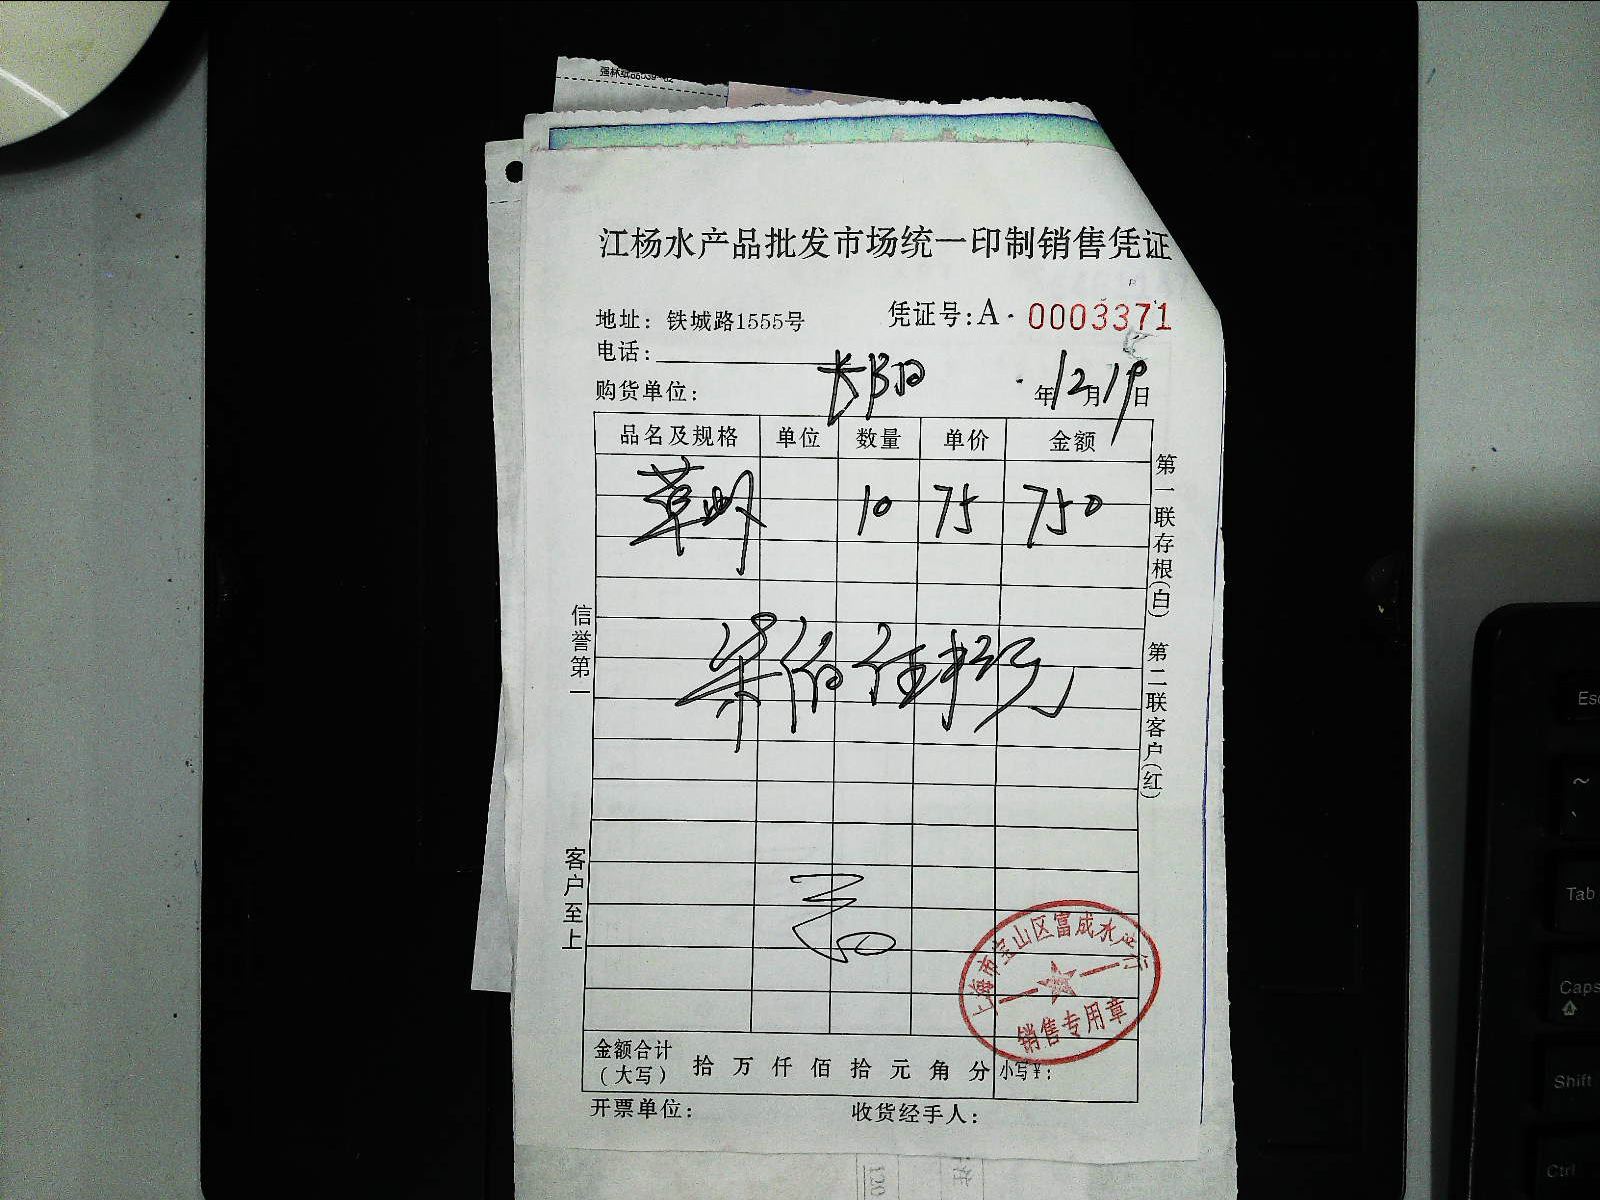 江杨水产品批发市场统一印制销售凭证
地址：铁城路1555号
凭证号：A·0003371
电话：
购货单位：长阳
年12月19日
品名及规格 单位 数量 单价 金额
草虾 10 75 750
柒佰伍拾元
信誉第一
客户至上
第一联存根(白)
第二联客户(红)
上海市宝山区富成水产行
销售专用章
金额合计（大写） 拾 万 仟 佰 拾 元 角 分 小写¥：
开票单位： 收货经手人：
Esc
~
Tab
Caps
Shift
Ctrl
120